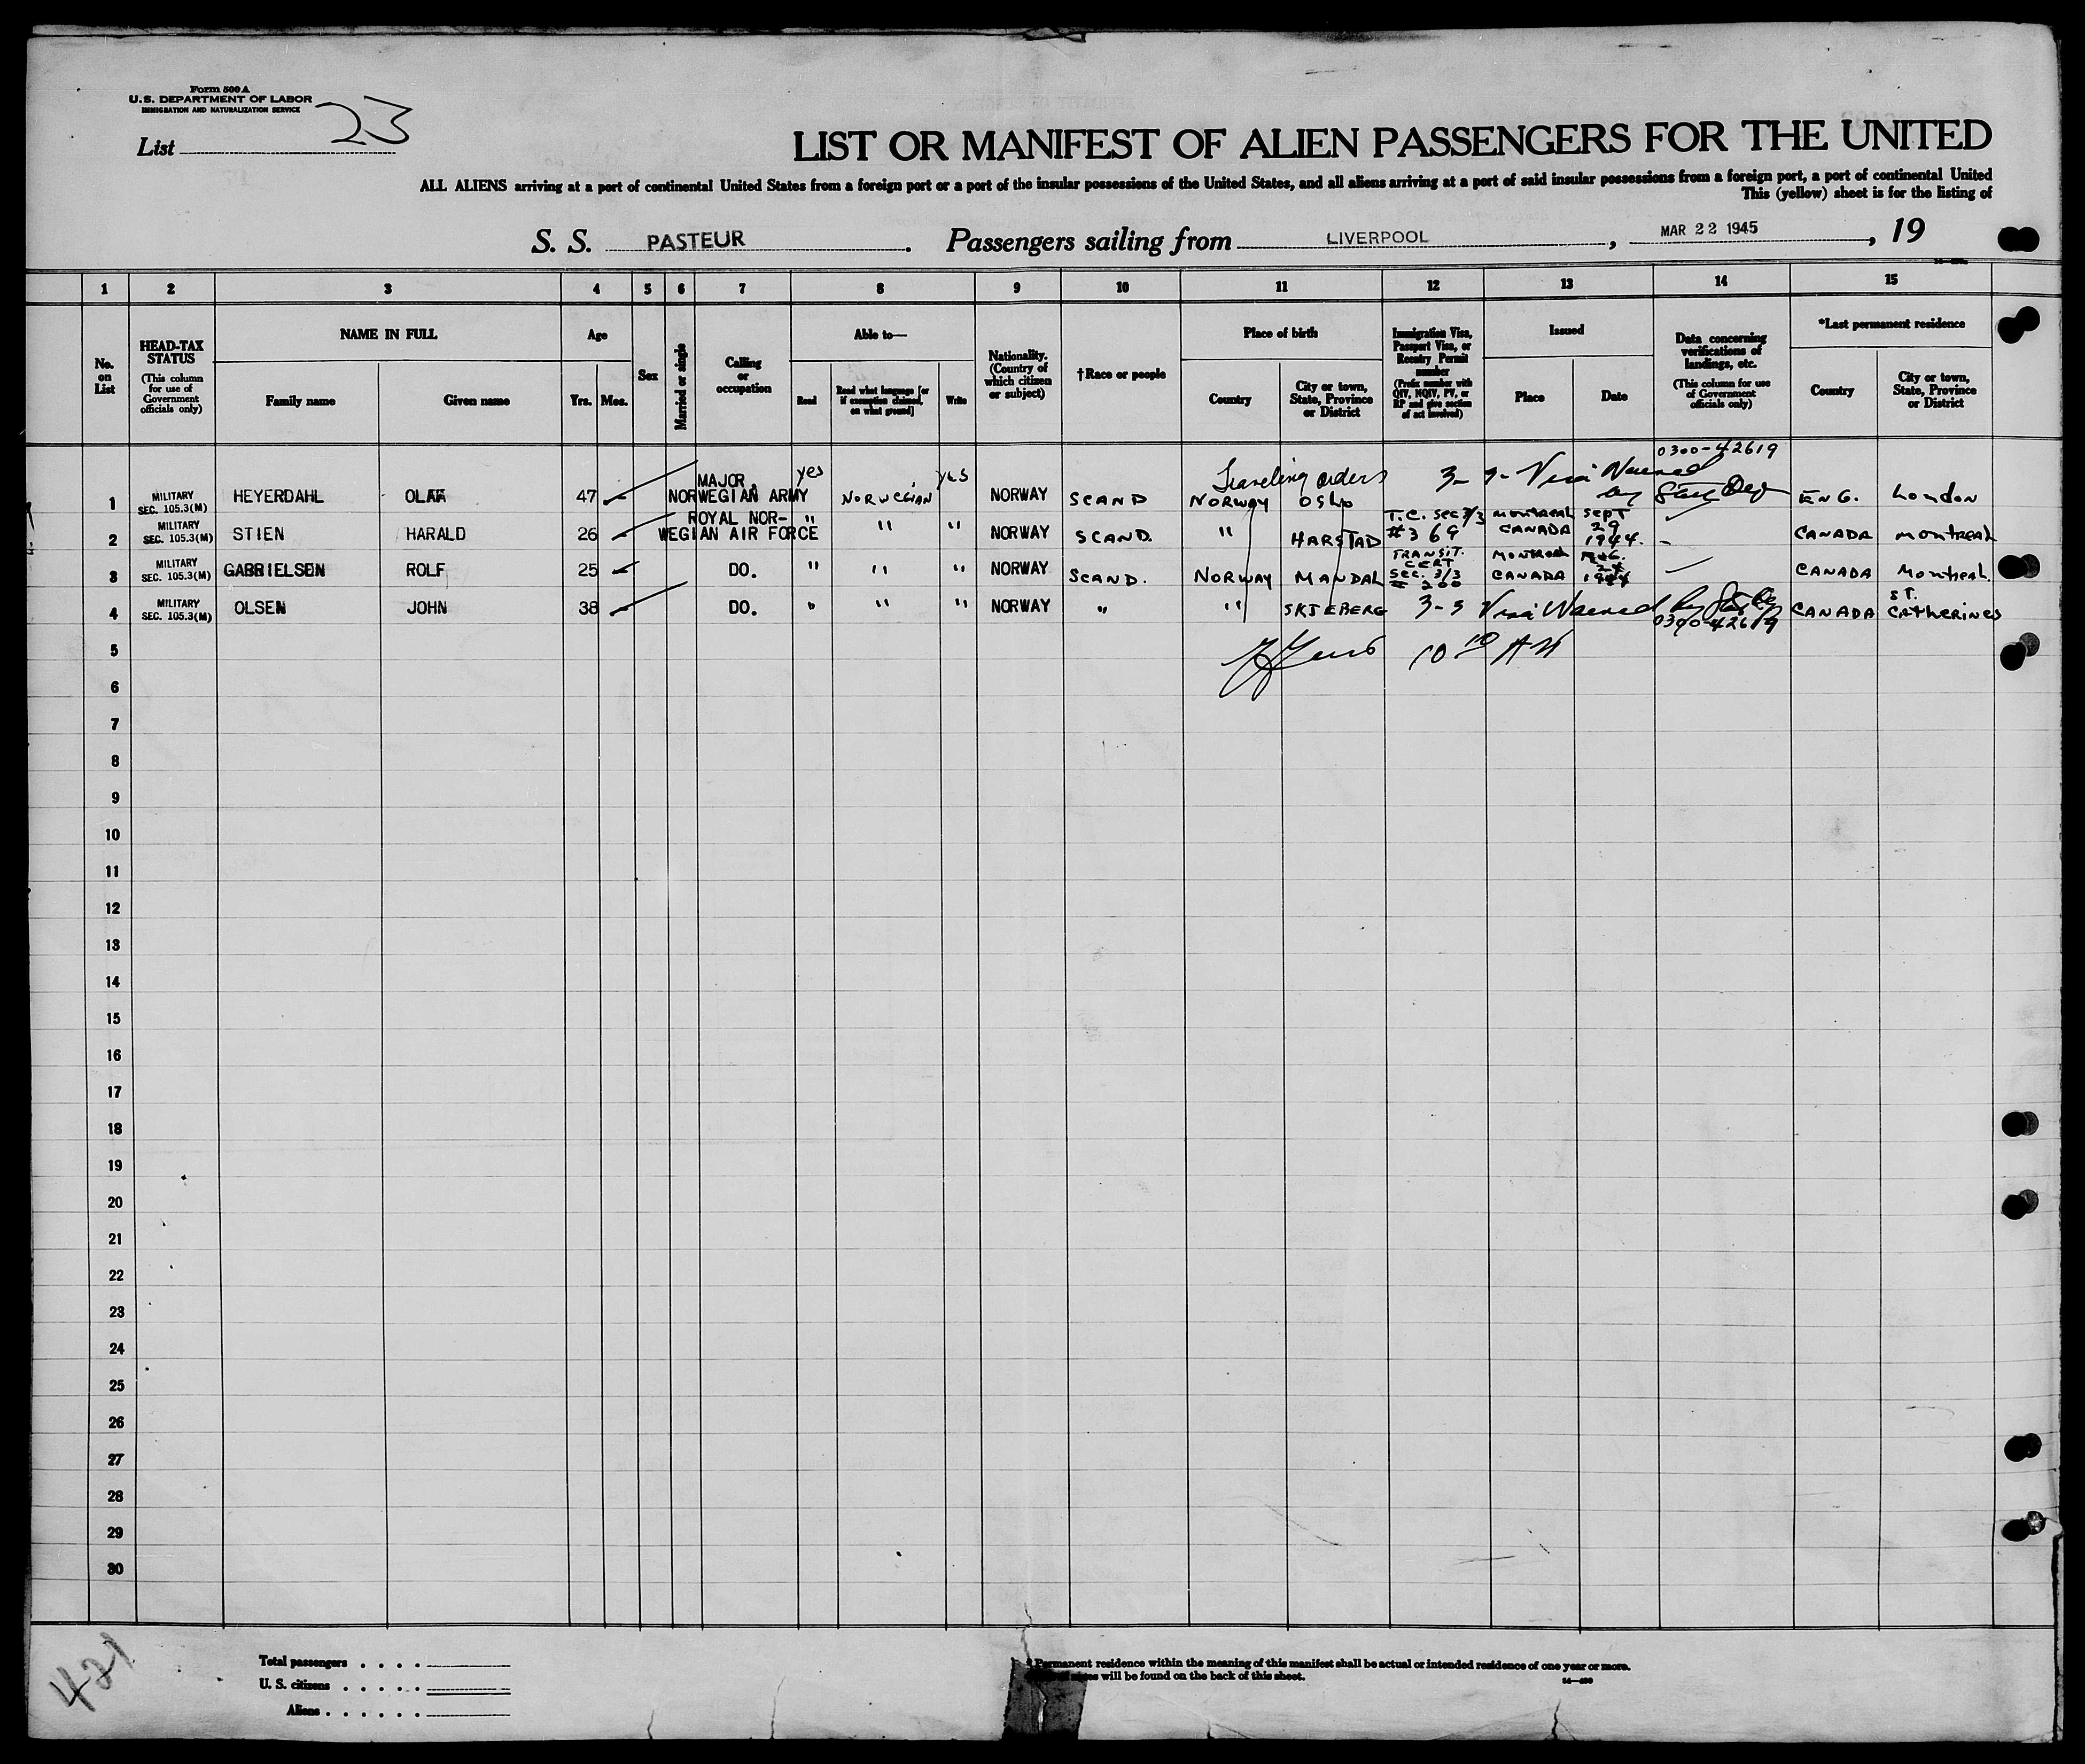 Form 500 A
U.S. DEPARTMENT OF LABOR
IMMIGRATION AND NATURALIZATION SERVICE
List 23
LIST OR MANIFEST OF ALIEN PASSENGERS FOR THE UNITED
ALL ALIENS arriving at a port of continental United States from a foreign port or a port of the insular possessions of the United States, and all aliens arriving at a port of said insular possessions from a foreign port, a port of continental United
This (yellow) sheet is for the listing of
S. S. PASTEUR. Passengers sailing from LIVERPOOL, MAR 22 1945, 19
1 2 3 4 5 6 7 8 9 10 11 12 13 14 15
No. on List
HEAD-TAX STATUS (This column for use of Government officials only)
NAME IN FULL
Family name Given name
Age
Yrs. Mos.
Sex
Married or single
Calling or occupation
Able to—
Read Read what language [or if exemption claimed, on what ground] Write
Nationality. (Country of which citizen or subject)
†Race or people
Place of birth
Country City or town, State, Province or District
Immigration Visa, Passport Visa, or Reentry Permit number (Prefix number with QIV, NQIV, PV, or RP and give section of act involved)
Issued
Place Date
Data concerning verifications of landings, etc. (This column for use of Government officials only)
*Last permanent residence
Country City or town, State, Province or District
0300-42619
Traveling orders
1 MILITARY SEC. 105.3(M) HEYERDAHL OLAF 47 MAJOR, NORWEGIAN ARMY yes NORWEGIAN yes NORWAY SCAND NORWAY OSLO 3- Visa Waived by State Dep ENG. London
2 MILITARY SEC. 105.3(M) STIEN HARALD 26 ROYAL NOR- WEGIAN AIR FORCE " " " NORWAY SCAND. " HARSTAD T.C. Sec 3/3 #369 MONTREAL CANADA SEPT 29 1944. CANADA MONTREAL
3 MILITARY SEC. 105.3(M) GABRIELSEN ROLF 25 DO. " " " NORWAY SCAND. NORWAY MANDAL TRANSIT. CERT SEC. 3/3 200 MONTREAL CANADA 24 1944 CANADA Montreal.
4 MILITARY SEC. 105.3(M) OLSEN JOHN 38 DO. " " " NORWAY " " SKJEBERG 3-3 Visa Waived by 0300-42619 CANADA ST. CATHERINES
5 10 10 AM
6
7
8
9
10
11
12
13
14
15
16
17
18
19
20
21
22
23
24
25
26
27
28
29
30
421
Total passengers . . . .
U. S. citizens . . . . .
Aliens . . . . . .
Permanent residence within the meaning of this manifest shall be actual or intended residence of one year or more.
will be found on the back of this sheet.